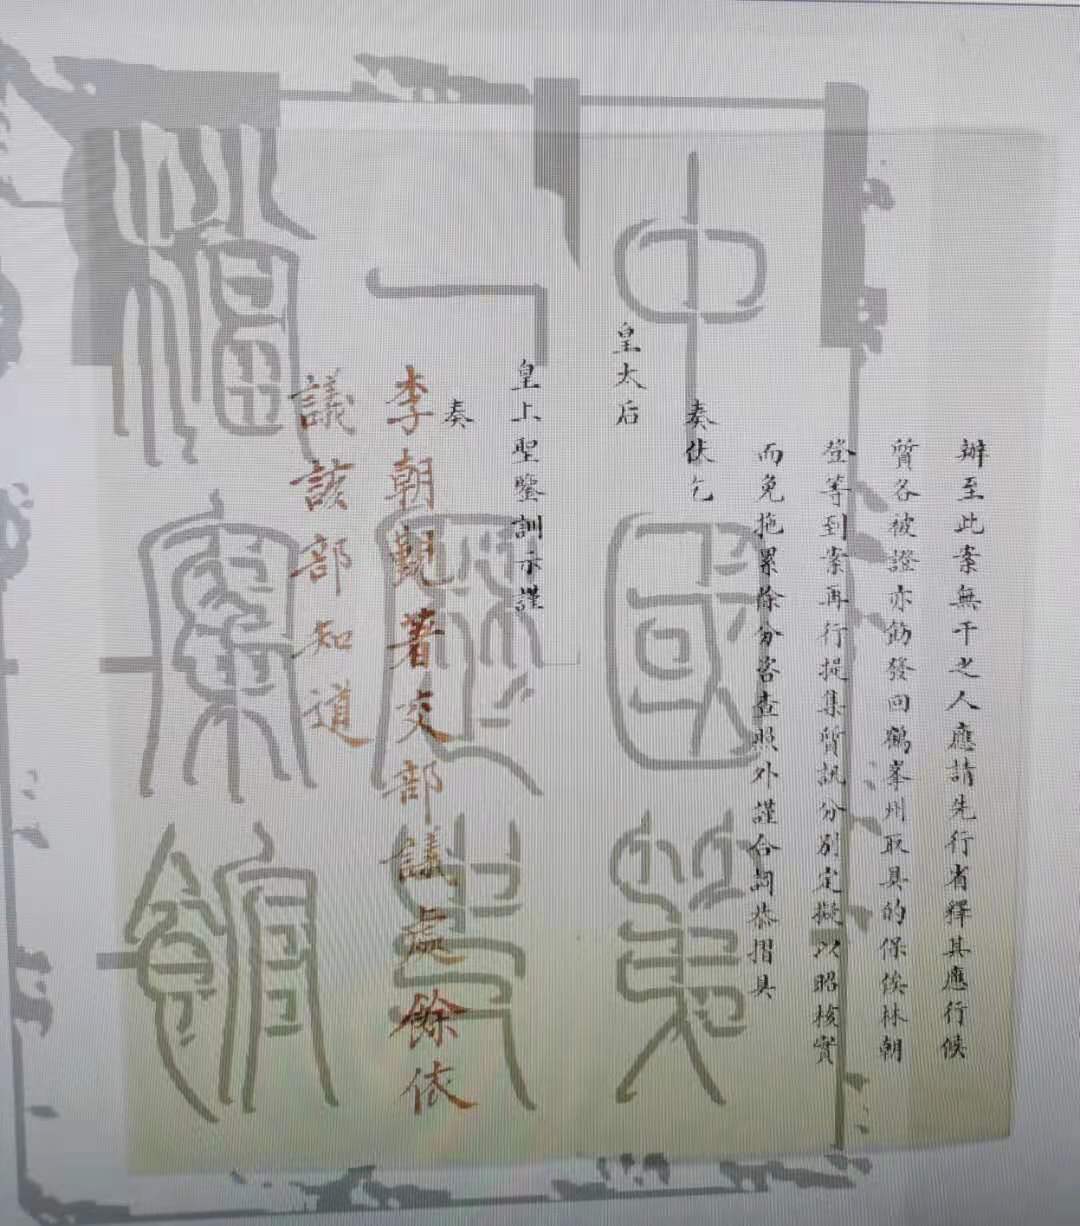 辦至此案無干之人應請先行省釋其應行候
質各被證亦飭發回鶴峯州取具的保俟林朝
登等到案再行提集質訊分别定擬以昭核實
而免拖累除分咨查照外謹合詞恭摺具
奏伏乞
皇太后
皇上聖鑒訓示謹
奏
李朝覲著交部議處餘依
議該部知道
中國第
一歷史
檔案館